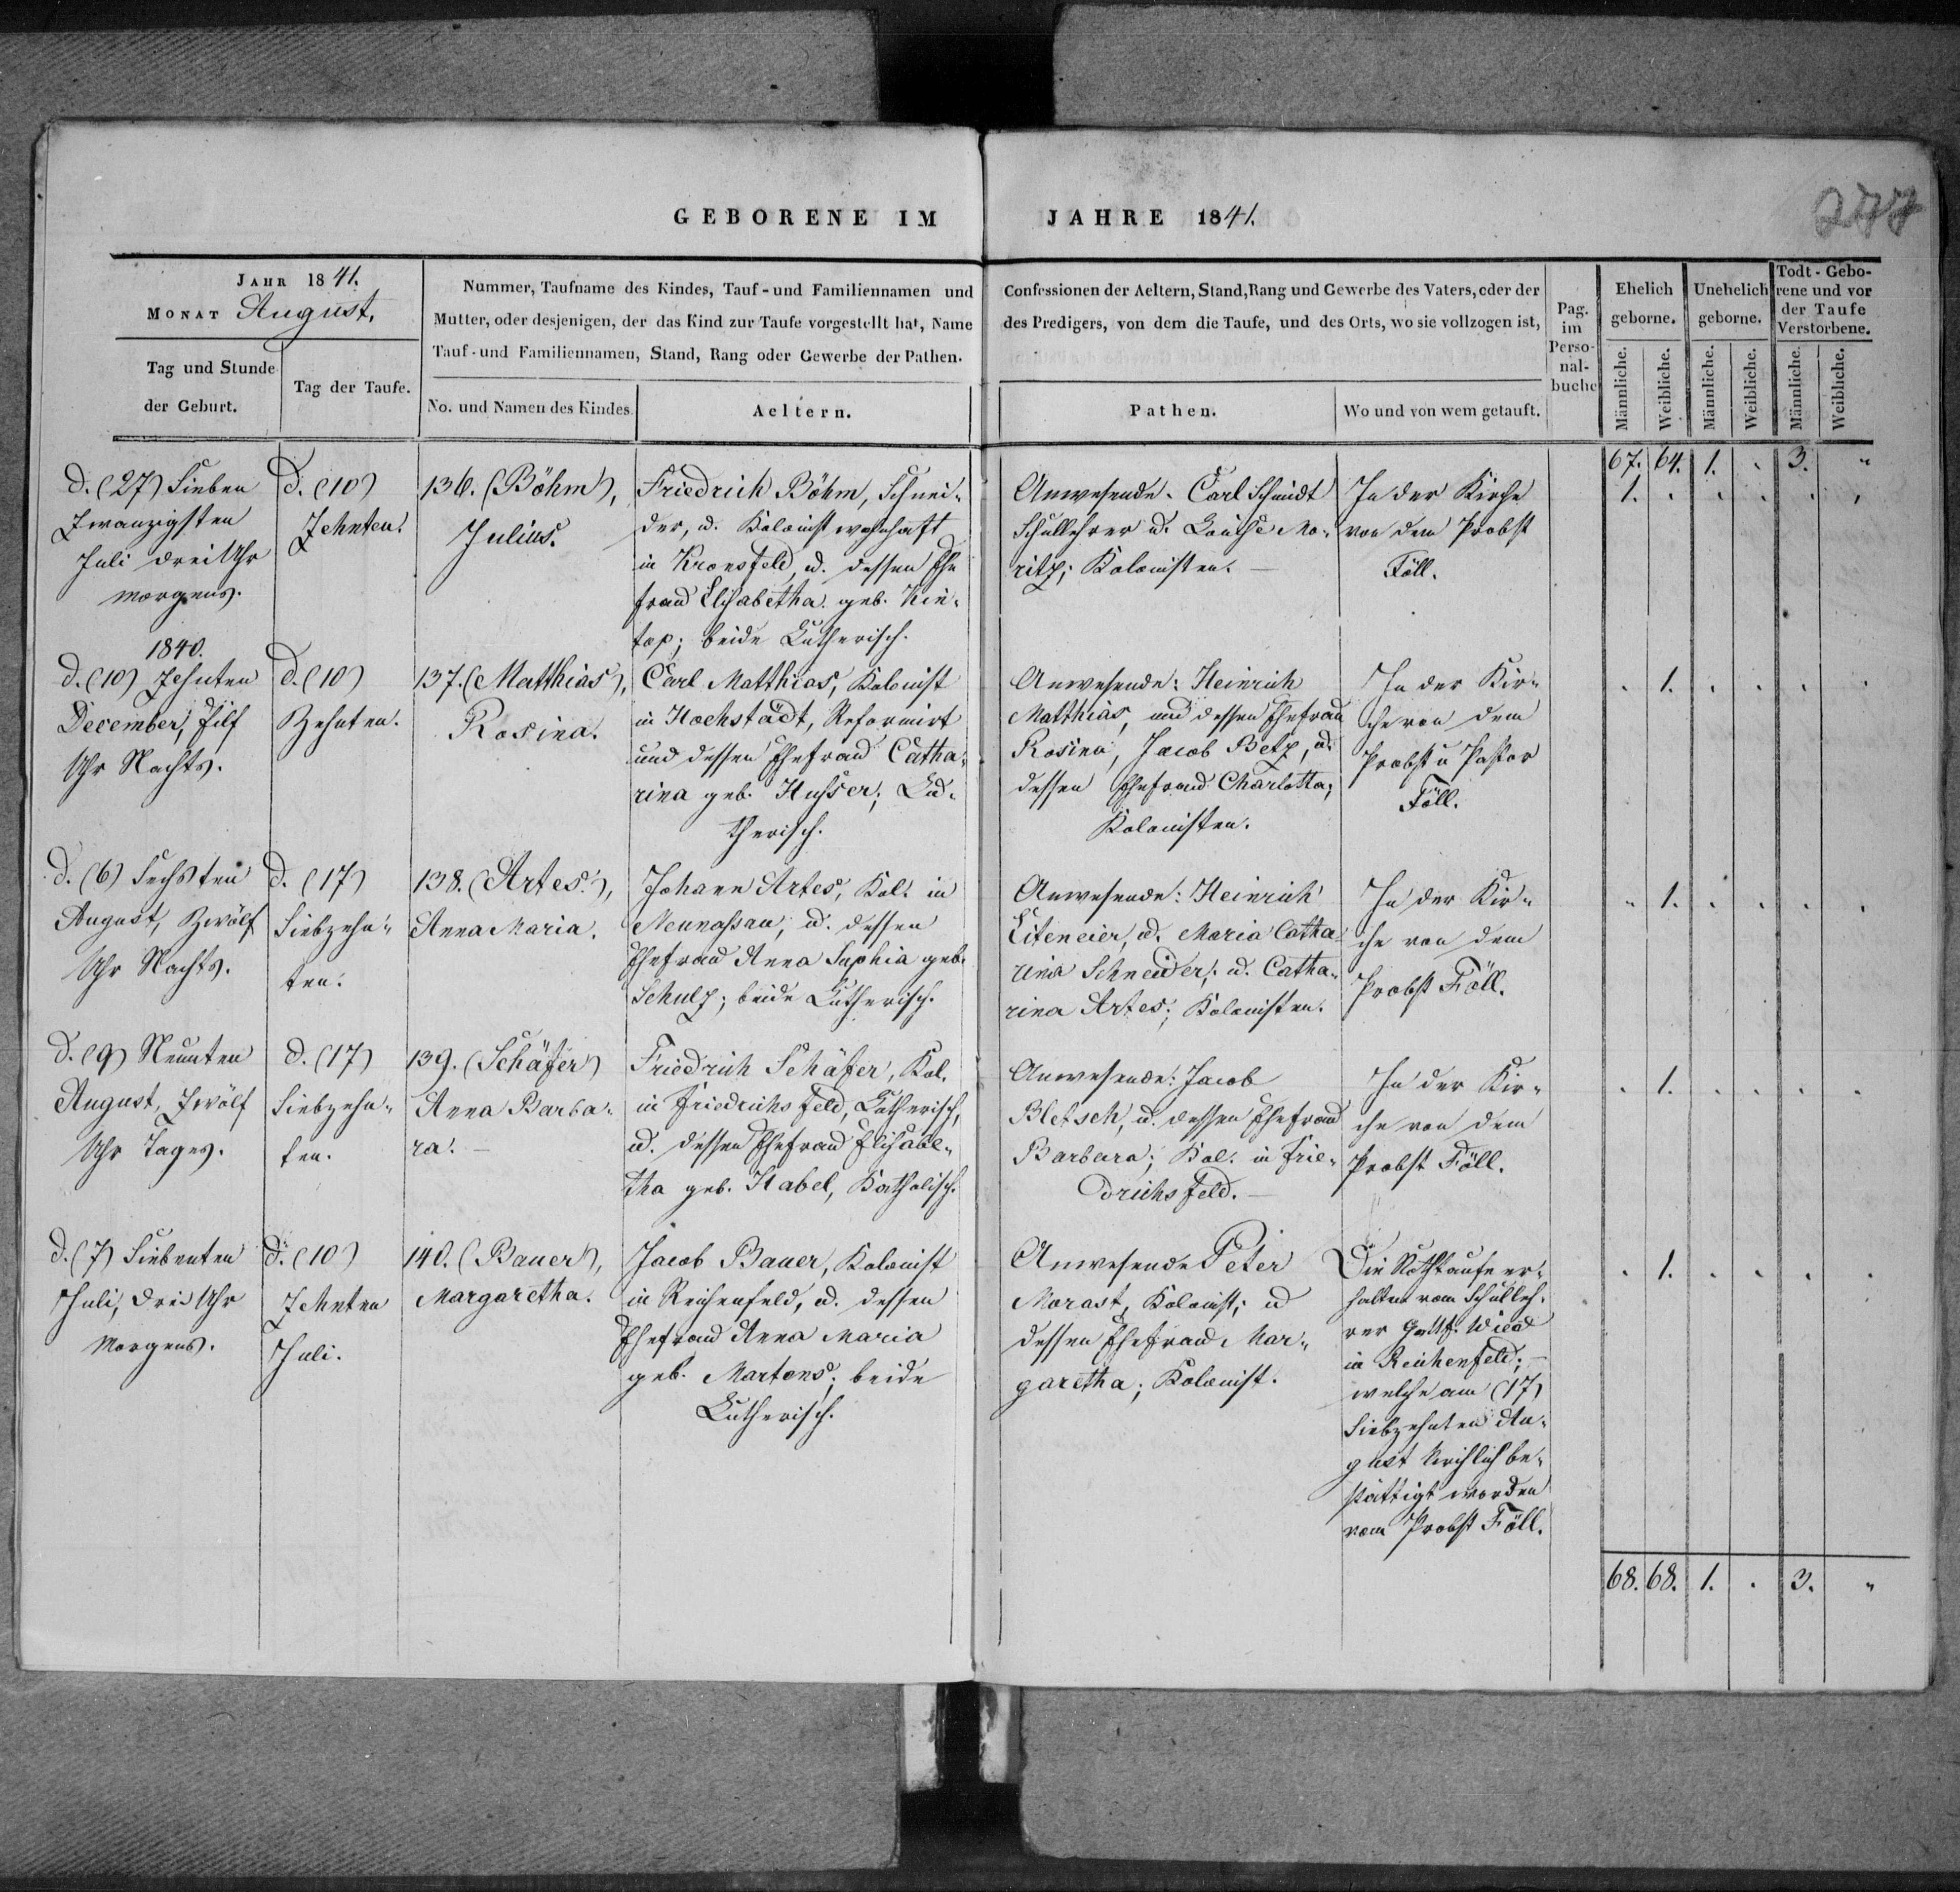 277
GEBORENE IM JAHRE 1841.
JAHR 1841.
MONAT August.
Tag und Stunde
der Geburt.
Tag der Taufe.
Nummer, Taufname des Kindes, Tauf- und Familiennamen und
Mutter, oder desjenigen, der das Kind zur Taufe vorgestellt hat, Name
Tauf- und Familiennamen, Stand, Rang oder Gewerbe der Pathen.
No. und Namen des Kindes.
Aeltern.
Confessionen der Aeltern, Stand, Rang und Gewerbe des Vaters, oder der
des Predigers, von dem die Taufe, und des Orts, wo sie vollzogen ist,
Pathen.
Wo und von wem getauft.
Pag.
im
Perso-
nal-
buche
Ehelich
geborne.
Unehelich
geborne.
Todt-Gebo-
rene und vor
der Taufe
Verstorbene.
Männliche.
Weibliche.
Männliche.
Weibliche.
Männliche.
Weibliche.
67. 64. 1. . 3. "
d. (27) Sieben
Zwanzigsten
Juli drei Uhr
morgens.
d. (10)
Zehnten.
136. (Böhm),
Julius.
Friedrich Böhm, Schnei-
der, u. Kolonist wohnhaft
in Kronsfeld, u. dessen Ehe
frau Elisabetha geb. Kin-
top; beide Lutherisch.
Anwesende. Carl Schmidt
Schullehrer u. Louise Mo-
ritz; Kolonisten. —
In der Kirche
von dem Probst
Föll.
1. . . . . .
1840.
d. (10) Zehnten
December, Eilf
Uhr Nachts.
d. (10)
Zehnten.
137. (Matthias),
Rosina.
Carl Matthias, Kolonist
in Hochstädt, Reformirt
und dessen Ehefrau Catha-
rina geb. Husser; Lu-
therisch.
Anwesende: Heinrich
Matthias, und dessen Ehefrau
Rosina, Jacob Betz, u.
dessen Ehefrau Charlotta;
Kolonisten.
In der Kir-
che von dem
Probst u Pastor
Föll.
. 1. . . . .
d. (6) Sechsten
August, Zwölf
Uhr Nachts.
d. (17)
Siebzehn-
ten.
138. (Artes.),
Anna Maria.
Johann Artes, Kol. in
Neunassau, u. dessen
Ehefrau Anna Sophia geb.
Schulz; beide Lutherisch.
Anwesende: Heinrich
Eiteneier, u. Maria Catha-
rina Schneider; u. Catha-
rina Artes; Kolonisten.
In der Kir-
che von dem
Probst Föll.
" 1. . . . .
d. (9) Neunten
August, Zwölf
Uhr Tages.
d. (17)
Siebzehn-
ten.
139. (Schäfer)
Anna Barba-
ra. —
Friedrich Schäfer, Kol.
in Friedrichsfeld, Lutherisch,
u. dessen Ehefrau Elisabe-
tha geb. Habel, Katholisch.
Anwesende: Jacob
Bletsch, u. dessen Ehefrau
Barbara; Kol. in Frie-
drichsfeld. —
In der Kir-
che von dem
Probst Föll.
. 1. . . . .
d. (7) Siebenten
Juli, drei Uhr
Morgens.
d. (10)
Zehnten
Juli.
140. (Bauer),
Margaretha.
Jacob Bauer, Kolonist
in Reichenfeld, u. dessen
Ehefrau Anna Maria
geb. Martens; beide
Lutherisch.
Anwesende Peter
Morast, Kolonist; u
dessen Ehefrau Mar-
garetha; Kolonist.
Die Nothtaufe er-
halten vom Schulleh-
rer Gottf. Wied
in Reichenfeld; —
welche am (17)
Siebzehnten Au-
gust kirchlich be-
stättigt worden
vom Probst Föll.
. 1. . . . .
68. 68. 1. . 3. "